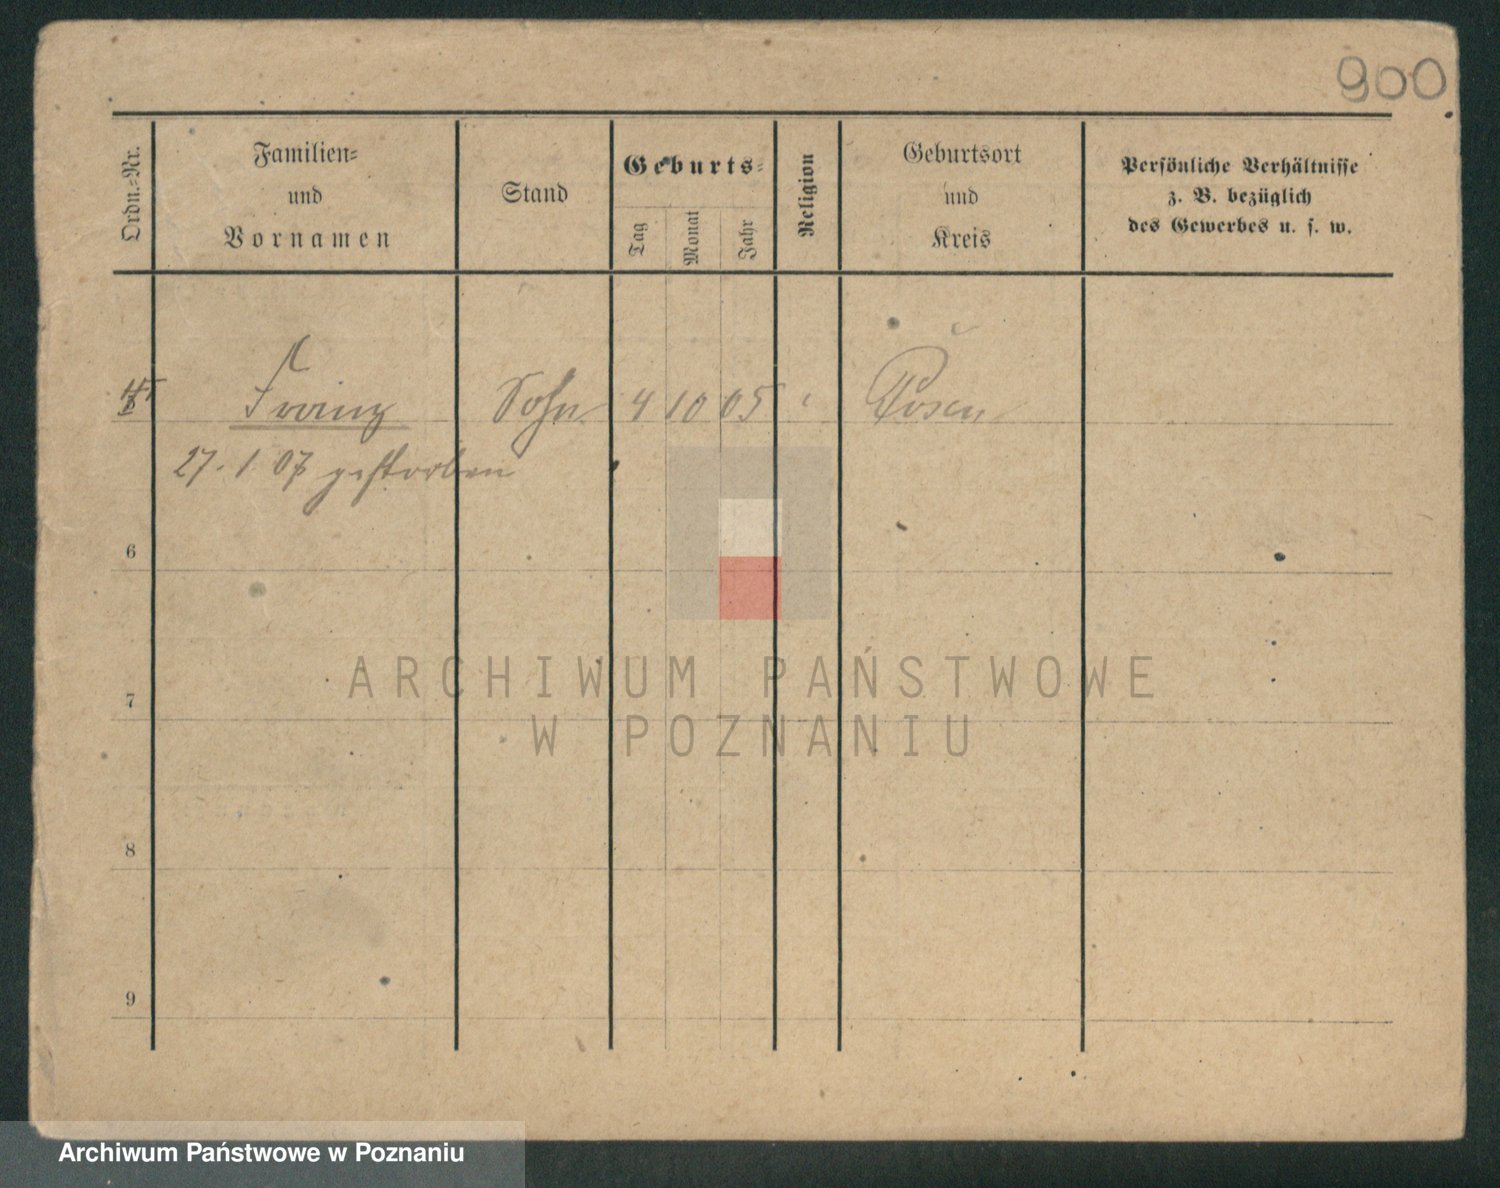 900
Ordn.-Nr.
Familien-
und
Vornamen
Stand
Geburts-
Tag
Monat
Jahr
Religion
Geburtsort
und
Kreis
Persönliche Verhältnisse
z. B. bezüglich
des Gewerbes u. s. w.
Franz Sohn 4 10 05 Posen
27. 1. 07 gestorben
6
7
8
9
ARCHIWUM PAŃSTWOWE
W POZNANIU
Archiwum Państwowe w Poznaniu